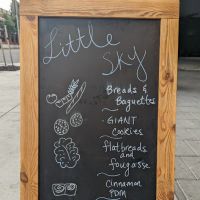 Little
Sky
Breads &
Baguettes
· GIANT
Cookies
flatbreads
and
fougasse
Cinnamon